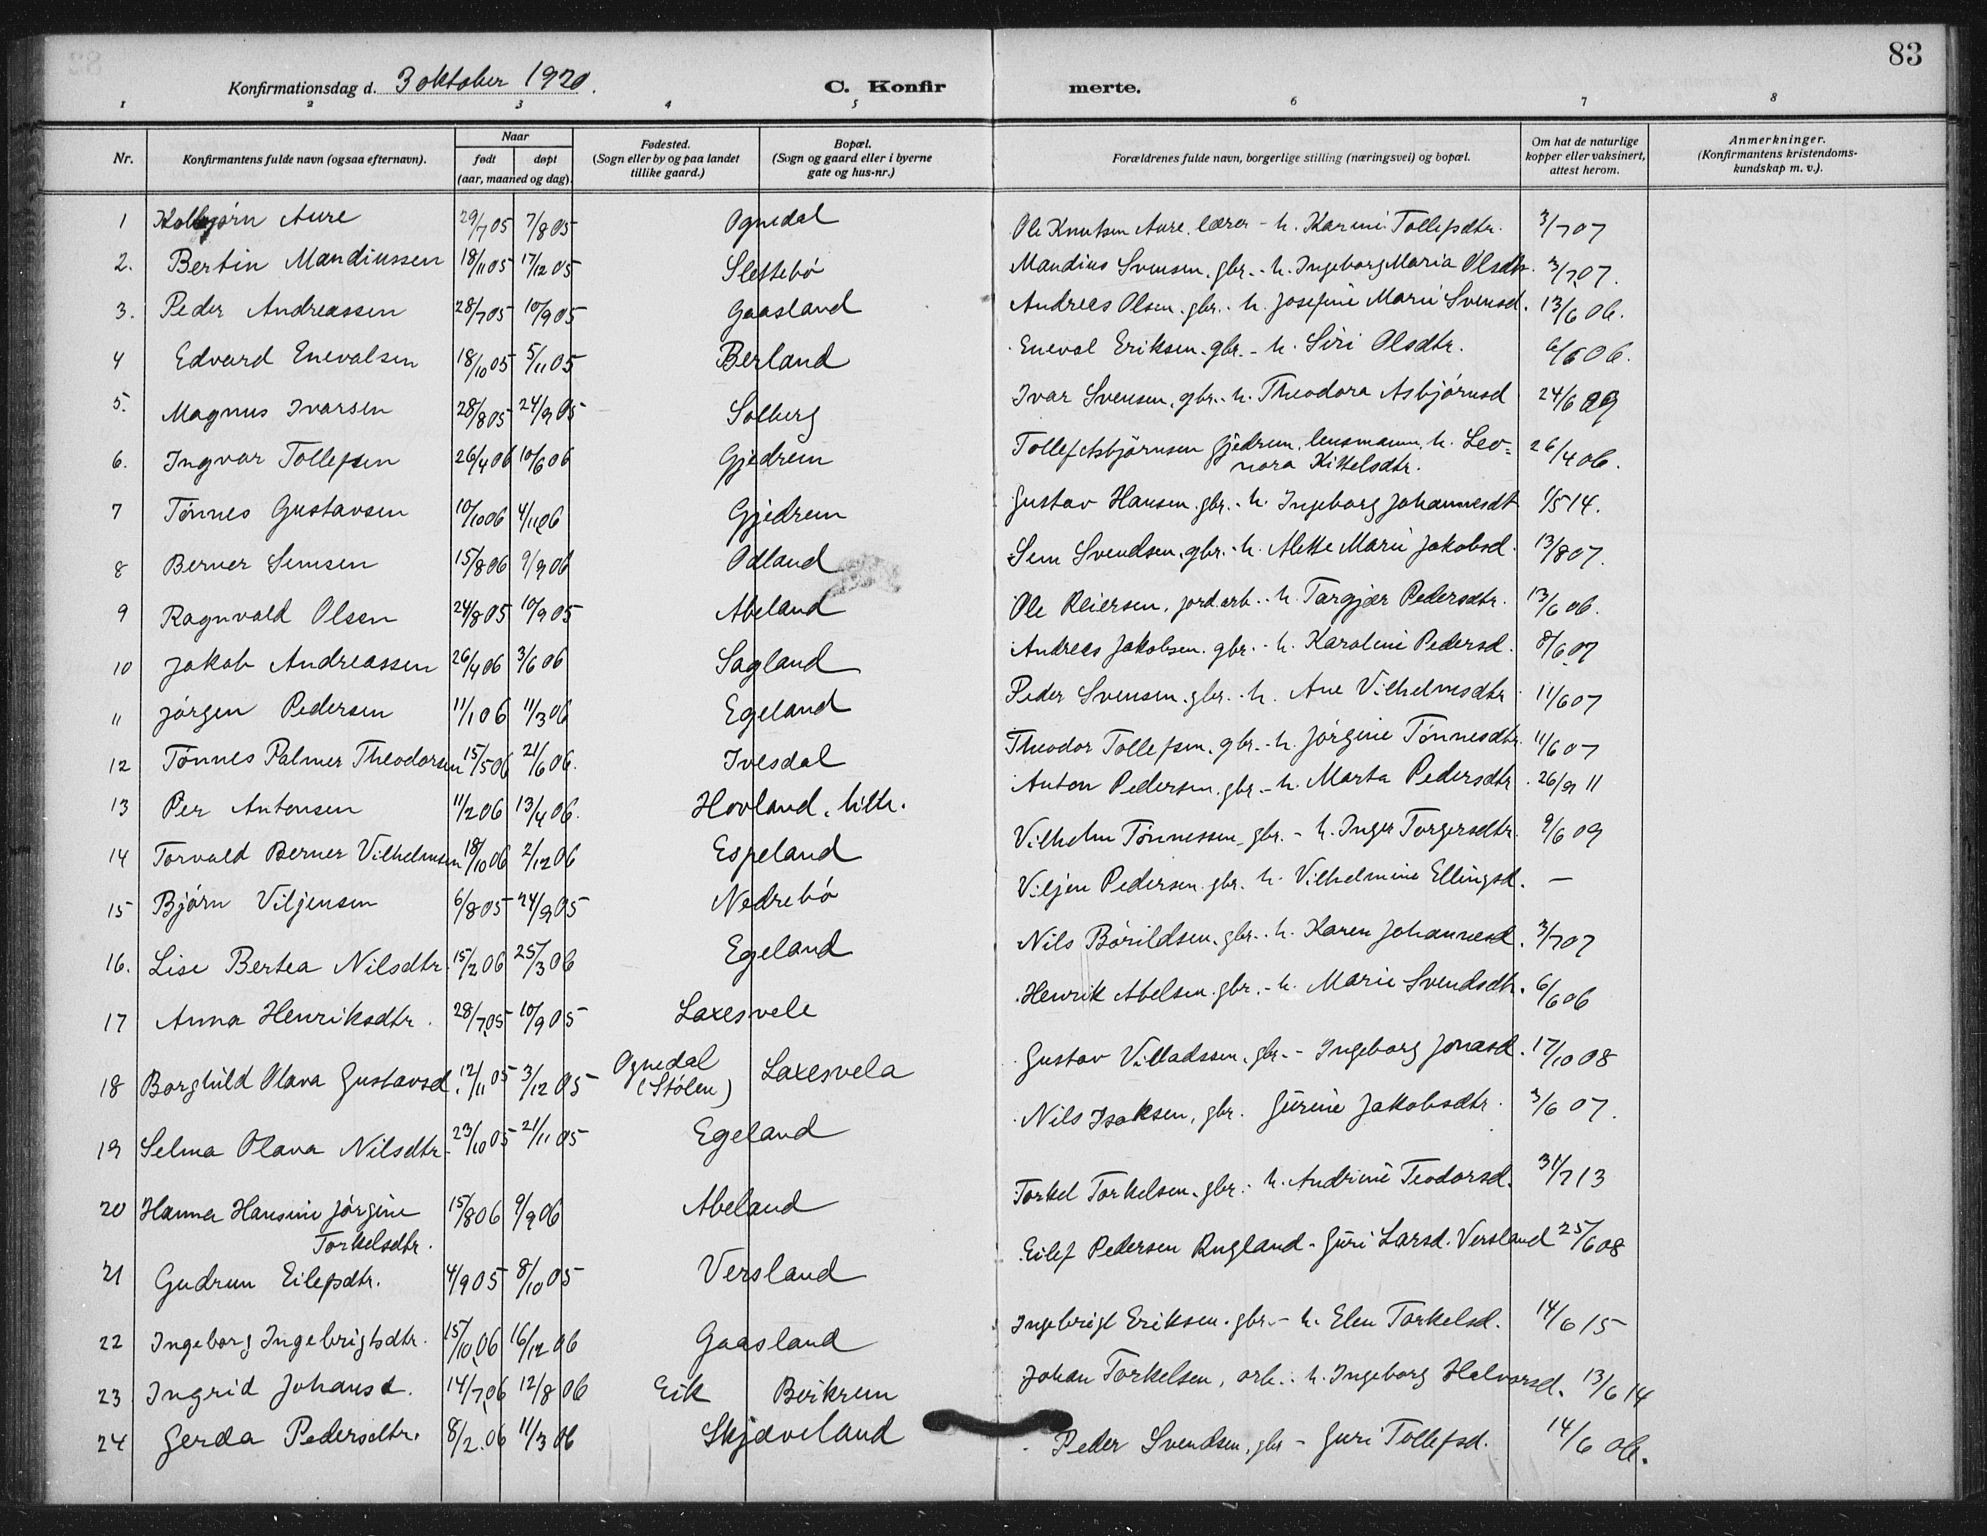 83
Konfirmationsdag d. 3 oktober 1920. C. Konfir merte.
1 2 3 4 5 6 7 8
Nr. Konfirmantens fulde navn (ogsaa efternavn). Naar født døpt (aar, maaned og dag). Fødested. (Sogn eller by og paa landet tillike gaard.) Bopæl. (Sogn og gaard eller i byerne gate og hus-nr.) Forældrenes fulde navn, borgerlige stilling (næringsvei) og bopæl. Om hat de naturlige kopper eller vaksinert, attest herom. Anmerkninger. (Konfirmantens kristendoms-kundskap m. v.).
1 Kolbjørn Aure 29/7 05 7/8 05 Ognedal Ole Knutsen Aure, lærer - h. Karine Tollefsdtr. 3/7 07
2. Bertin Mandiussen 18/11 05 17/12 05 Slettebø Mandius Svensen, gbr. - h. Ingeborg Maria Olsdtr. 3/7 07.
3. Peder Andreassen 28/7 05 10/9 05 Gaasland Andreas Olsen, gbr. - h. Josefine Marie Svensd. 13/6 06.
4 Edvard Enevalsen 18/10 05 5/11 05 Berland Eneval Eriksen, gbr. - h. Siri Olsdtr. 6/6 06.
5. Magnus Ivarsen 28/8 05 24/9 05 Solberg Ivar Svensen, gbr. - h. Theodora Asbjørnsd 24/6 09
6. Ingvar Tollefsen 26/4 06 10/6 06 Gjedrem Tollef Asbjørnsen Gjedrem, lensmann, h. Leo-
nora Kittelsdtr. 26/4 06.
7 Tønnes Gustavsen 10/10 06 4/11 06 Gjedrem Gustav Hansen, gbr. - h. Ingeborg Johannesdt 1/5 14.
8 Berner Semsen 15/8 06 9/9 06 Odland Sem Svendsen, gbr. - h. Alette Marie Jakobsd. 13/8 07.
9 Ragnvald Olsen 24/8 05 10/9 05 Abeland Ole Reiersen, jord.arb. - h. Targjær Pedersdtr. 13/6 06.
10 Jakob Andreassen 26/4 06 3/6 06 Sagland Andreas Jakobsen, gbr. - h. Karoline Pedersd. 8/6 07
11 Jørgen Pedersen 11/1 06 11/3 06 Egeland Peder Svensen, gbr. - h. Ane Vilhelmsdtr 11/6 07
12 Tønnes Palmer Theodorsen 15/5 06 21/6 06. Ivesdal Theodor Tollefsen, gbr. - h. Jørgine Tønnesdtr. 11/6 07
13 Per Antonsen 11/2 06 13/4 06. Hovland, Anton Pedersen, gbr. - h. Marta Pedersdtr. 26/9 11
14 Torvald Berner Vilhelmsen 18/10 06 2/12 06 Espeland Vilhelm Tønnessen, gbr. - h. Inger Torgersdtr. 9/6 09
15 Bjørn Viljensen 6/8 05 24/9 05 Nedrebø Viljen Pedersen gbr. h. Vilhelmine Ellingsd. —
16. Lise Bertea Nilsdtr 15/2 06 25/3 06 Egeland Nils Bårildsen, gbr. - h. Karen Johannesd. 3/7 07
17 Anna Henriksdtr. 28/7 05 10/9 05 Laxesvele Henrik Abelsen, gbr. - h. Marie Svendsdtr. 6/6 06
18 Borghild Olava Gustavsd. 12/11 05 3/12 05 Ognedal (Stølen) Laxesvela Gustav Villadssen, gbr. - Ingeborg Jonasd. 17/10 08
19 Selma Olava Nilsdtr. 23/10 05 21/11 05 Egeland Nils Isaksen, gbr. Gurine Jakobsdtr. 3/6 07.
20 Hanna Hansine Jørgine
Torkelsdtr. 15/8 06 9/9 06 Abeland Torkel Torkelsen, gbr. - h. Andrine Teodorsd. 31/7 13
21 Gudrun Eilefsdtr. 4/9 05 8/10 05 Versland Eilef Pedersen Rugland - Guri Larsd. Versland 25/6 08
22 Ingeborg Ingebrigtsdtr. 15/10 06 16/12 06 Gaasland Ingebrigt Eriksen, gbr. - h. Elen Torkelsd. 14/6 15
23 Ingrid Johansd. 14/7 06 12/8 06 Eik Bjerkrem Johan Torkelsen, arb. - h. Ingeborg Halvorsd. 13/6 14
24 Gerda Pedersdtr. 8/2 06 11/3 06 Skjæveland Peder Svendsen, gbr - Guri Tollefsd. 14/6 06.